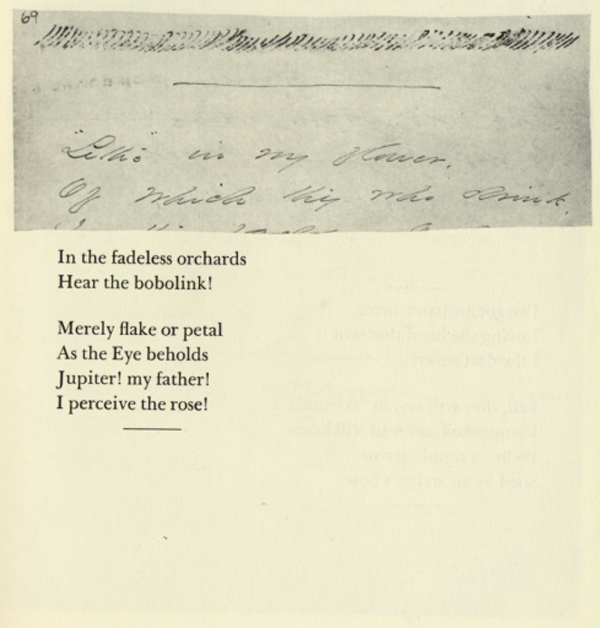 69
"Lethe" in my flower,
Of which they who drink,
In the fadeless orchards
Hear the bobolink!
Merely flake or petal
As the Eye beholds
Jupiter! my father!
I perceive the rose!